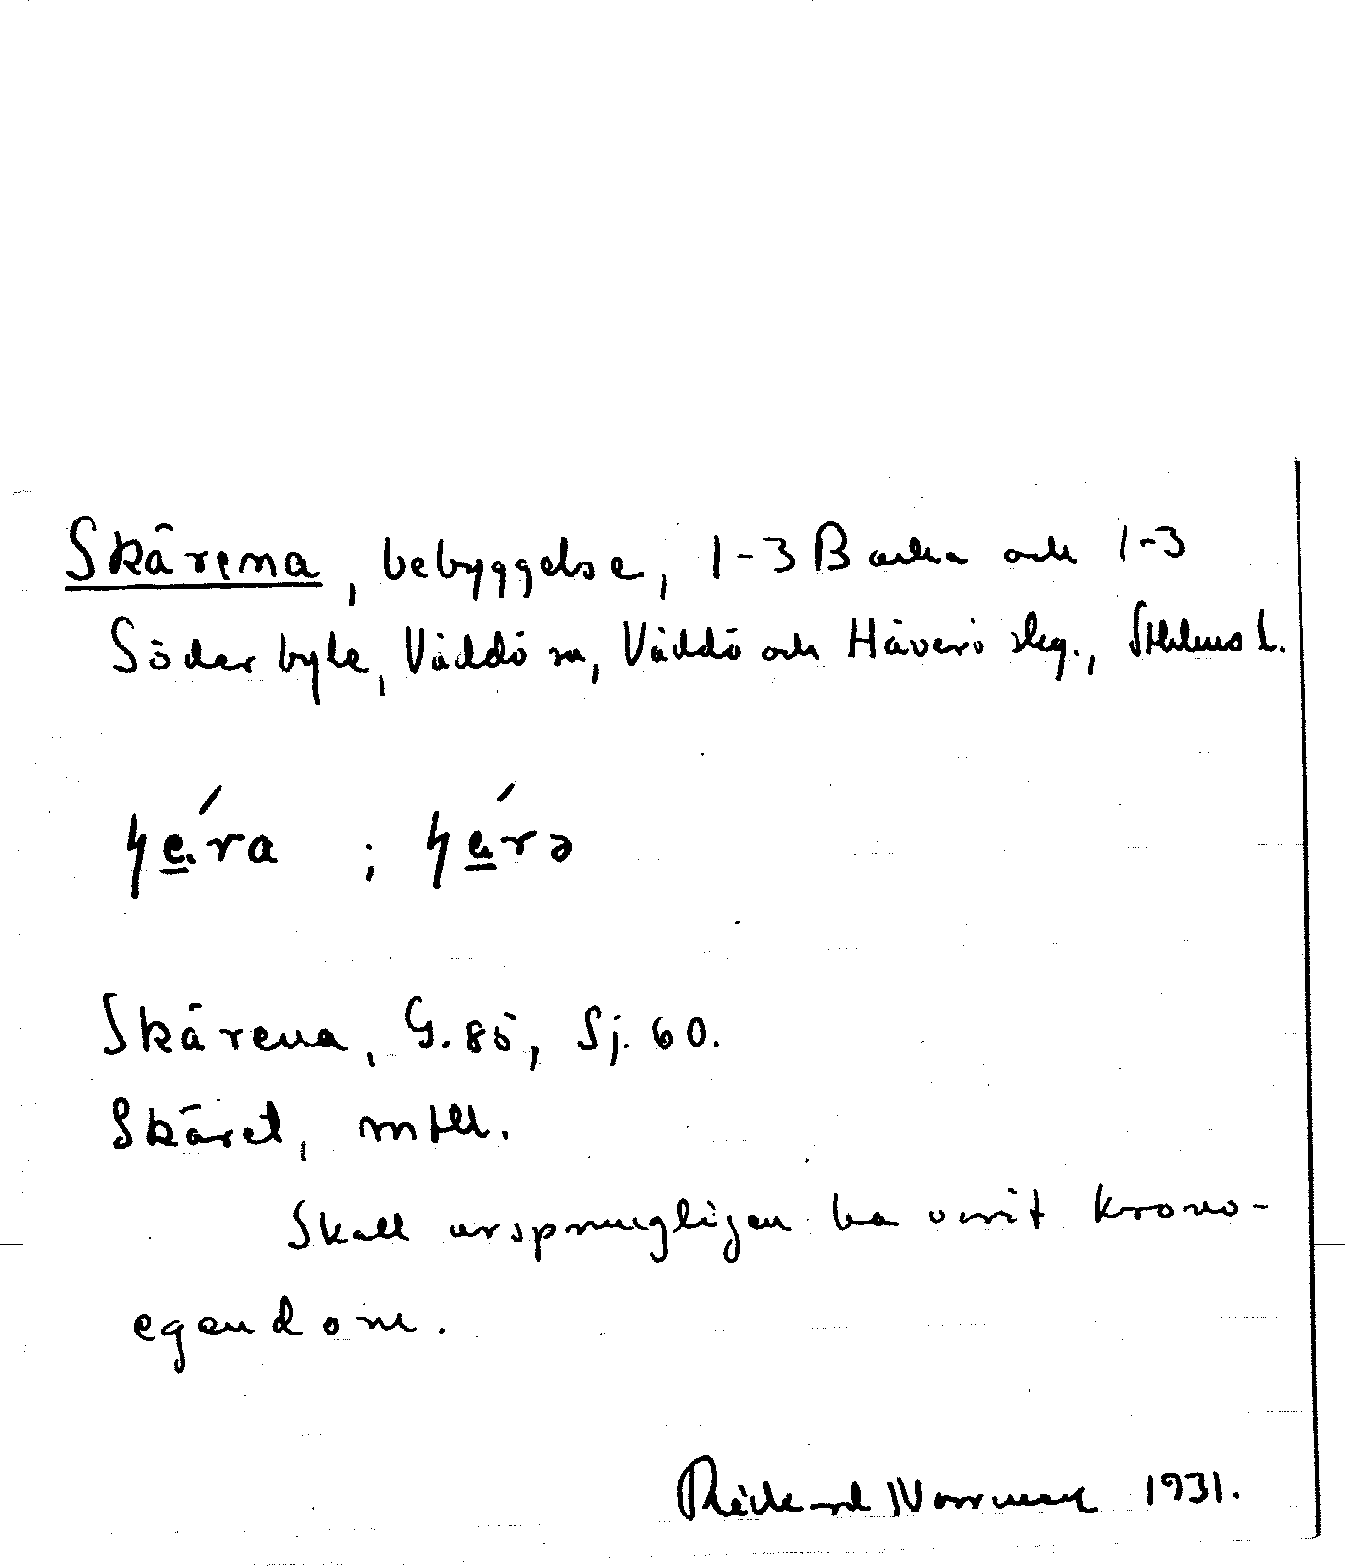 Skärena, bebyggelse, 1-3 Backa och 1-3
Söderbyle, Väddö sn, Väddö och Häverö skg., Sthlms l.
Skärena, G. 85, Sj. 60.
Skäret, mtll.
Skall ursprungligen ha varit krono-
egendom.
Rickard Norrman 1931.